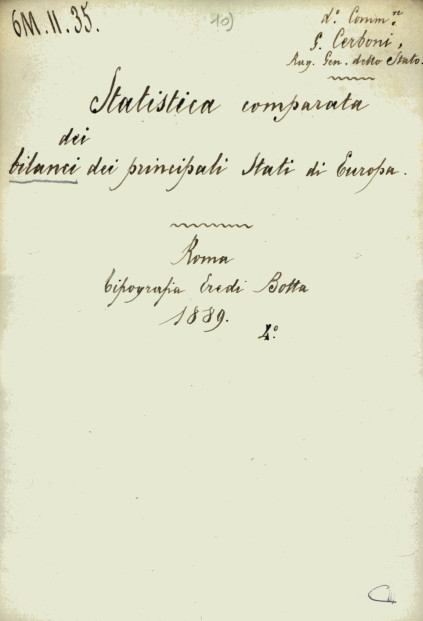 6M.II.35.
10)
d.º Comm.re
G. Cerboni,
Rag. Gen. dello Stato.
Statistica comparata
dei
bilanci dei principali Stati di Europa.
Roma
Tipografia Eredi Botta
1889.
4º